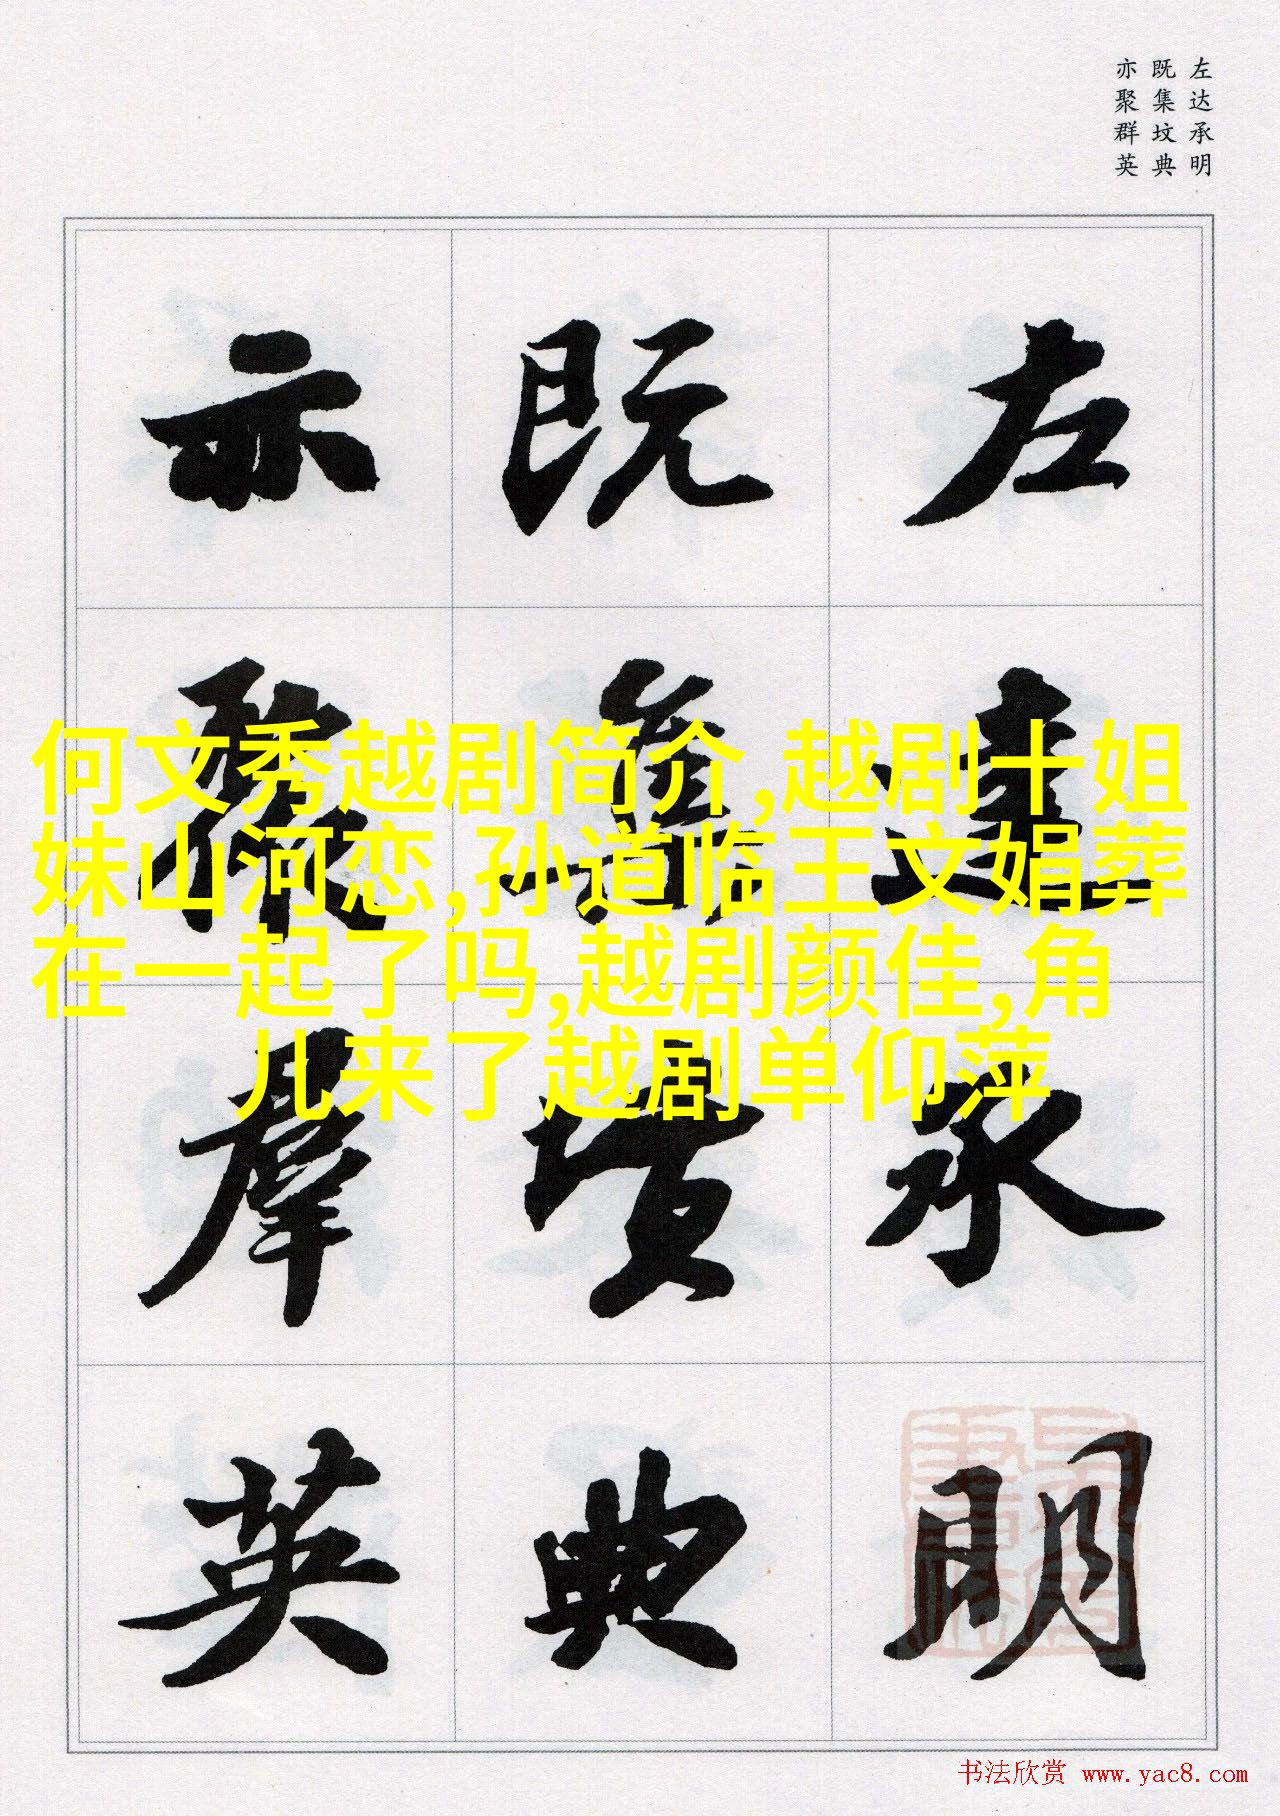 左达承明
既集坟典
亦聚群英
左達承明
既集墳典
亦聚群英
何文秀越剧简介,越剧十姐
妹山河恋,孙道临王文娟葬
在一起了吗,越剧颜佳,角
儿来了越剧单仰萍
书法欣赏 www.yac8.com